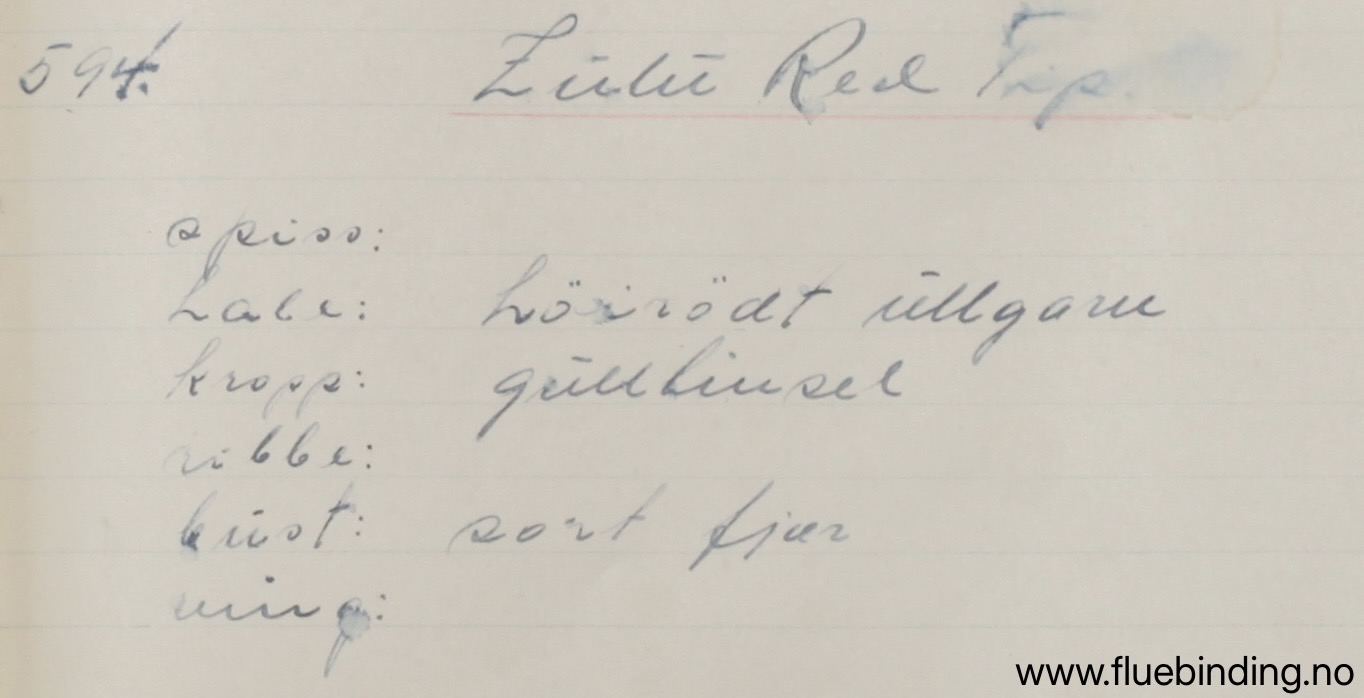 594. Zulu Red Tip.
spiss:
hale: höirödt ullgarn
kropp: gulltinsel
ribbe:
bust: sort fjær
ving:
www.fluebinding.no